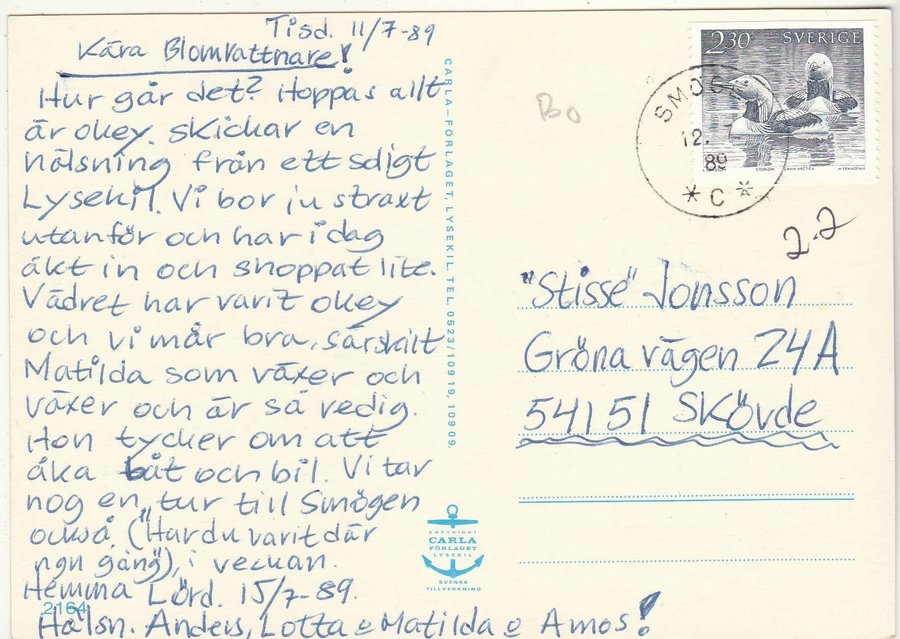 Tisd. 11/7-89
Kära Blomvattnare!
Hur går det? Hoppas allt
är okey. Skickar en
hälsning från ett soligt
Lysekil. Vi bor ju straxt
utanför och har idag
åkt in och shoppat lite.
Vädret har varit okey
och vi mår bra, särskilt
Matilda som växer och
växer och är så redig.
Hon tycker om att
åka båt och bil. Vi tar
nog en tur till Smögen
också. ("Har du varit där
ngn gång"), i veckan.
Hemma Lörd. 15/7-89.
2164
Hälsn. Anders, Lotta o Matilda o Amos!
CARLA-FÖRLAGET, LYSEKIL TEL. 0523/109 19, 109 09
COPYRIGHT
CARLA
FÖRLAGET
LYSEKIL
SVENSK
TILLVERKNING
Bo
2.30 SVERIGE
STORLOM GAVIA ARCTICA M. FRANZÉN SC
SMÖGE
12. 7
89
* C *
2.2
"Stisse" Jonsson
Gröna vägen 24A
54151 Skövde